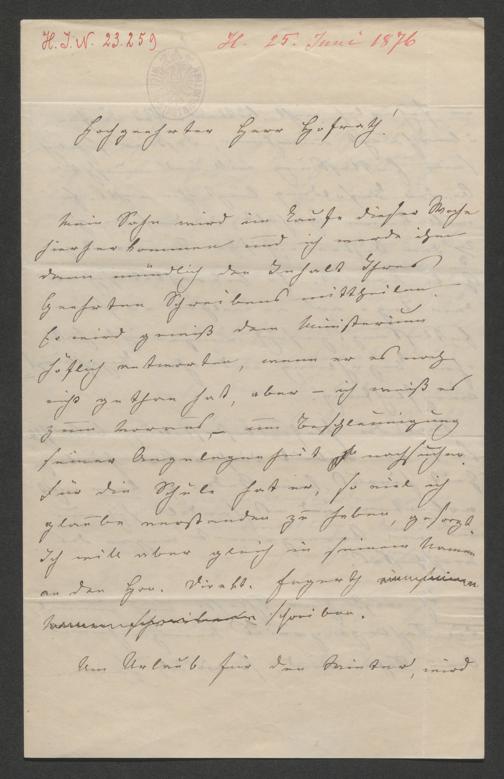 H. I. N. 23.259
H. 25. Juni 1876
Hochgeehrter Herr Hofrath!
Mein Sohn wird im Laufe dieser Woche
hierher kommen und ich werde ihm
dann mündlich den Inhalt Ihres
geehrten Schreibens mittheilen.
Er wird gewiß dem Ministerium
höflich antworten, wenn er es noch
nicht gethan hat, aber – ich weiß es
zum voraus – um Beschleunigung
seiner Angelegenheit nachsuchen.
Für die Schule hat er, so viel ich
glaube verstanden zu haben, gesorgt.
Ich will aber gleich in seinem Namen
an den Hrn. Direkt. Engerth
schreiben.
Um Urlaub für den Winter, wird